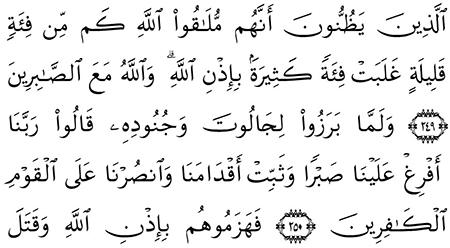 ٱلَّذِينَ يَظُنُّونَ أَنَّهُم مُّلَـٰقُوا۟ ٱللَّهِ كَم مِّن فِئَةٍ
قَلِيلَةٍ غَلَبَتْ فِئَةً كَثِيرَةًۢ بِإِذْنِ ٱللَّهِ ۗ وَٱللَّهُ مَعَ ٱلصَّـٰبِرِينَ
﴿٢٤٩﴾ وَلَمَّا بَرَزُوا۟ لِجَالُوتَ وَجُنُودِهِۦ قَالُوا۟ رَبَّنَا
أَفْرِغْ عَلَيْنَا صَبْرًا وَثَبِّتْ أَقْدَامَنَا وَٱنصُرْنَا عَلَى ٱلْقَوْمِ
ٱلْكَـٰفِرِينَ ﴿٢٥٠﴾ فَهَزَمُوهُم بِإِذْنِ ٱللَّهِ وَقَتَلَ